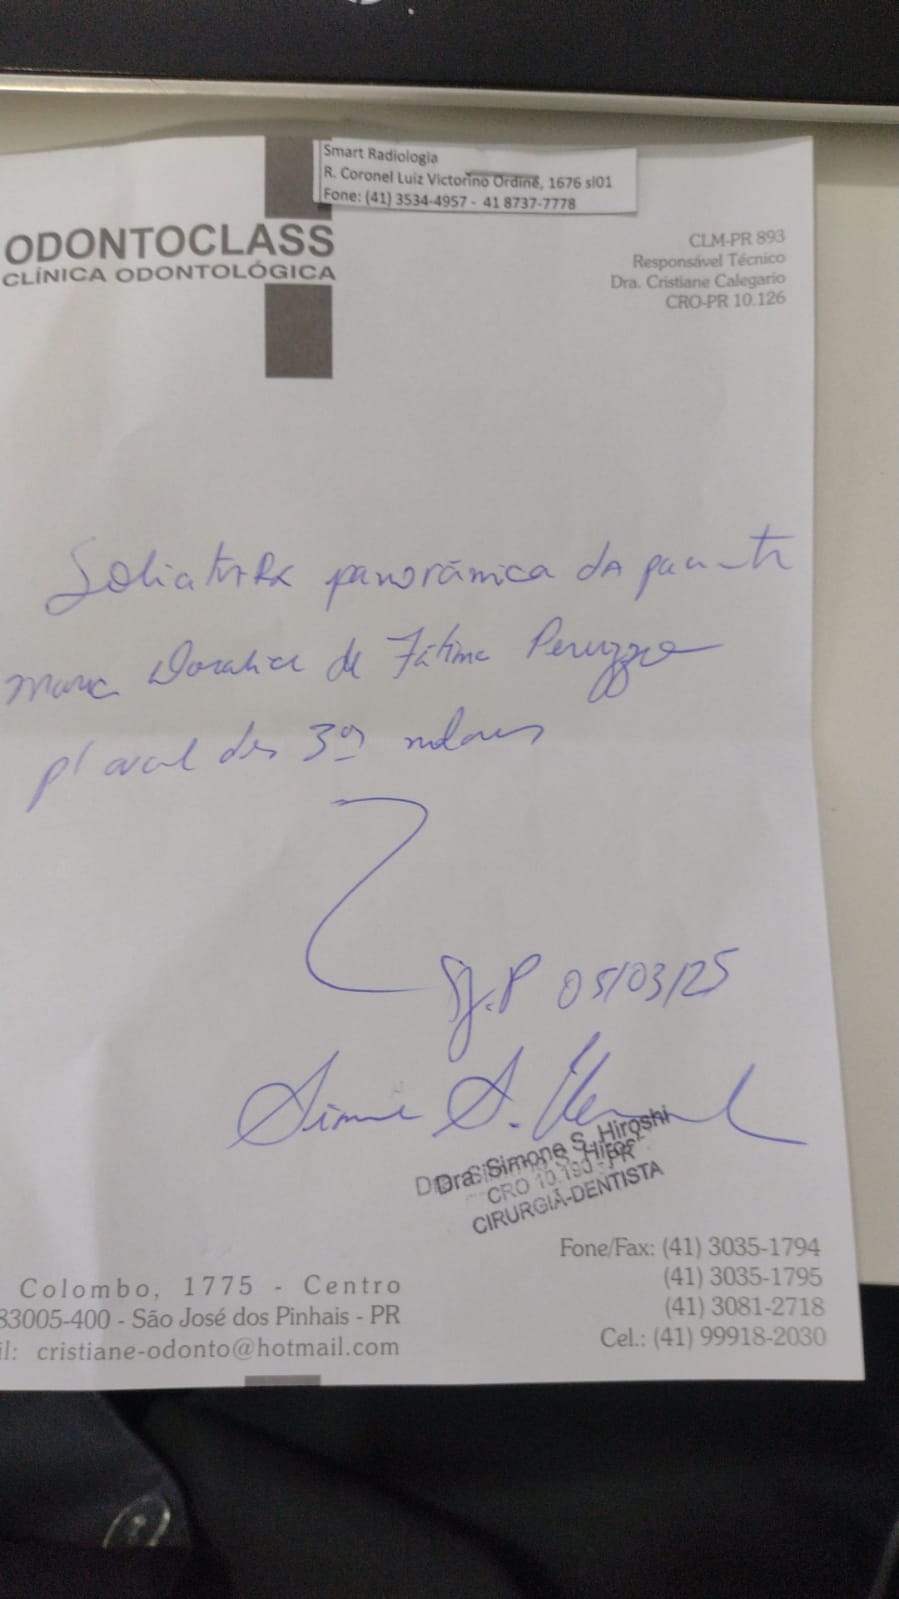 Smart Radiologia
R. Coronel Luiz Victorino Ordine, 1676 sl01
Fone: (41) 3534-4957 - 41 8737-7778
ODONTOCLASS
CLÍNICA ODONTOLÓGICA
CLM-PR 893
Responsável Técnico
Dra. Cristiane Calegario
CRO-PR 10.126
Solicito RX panorâmica da paciente
Maria Doralice de Fátima Peruzzo
p/ aval dos 3os molares
SJ.P 05/03/25
Simone S. Hiroshi
Dra. Simone S. Hiroshi
CRO 10.190 - PR
CIRURGIÃ-DENTISTA
Fone/Fax: (41) 3035-1794
(41) 3035-1795
(41) 3081-2718
Cel.: (41) 99918-2030
Colombo, 1775 - Centro
83005-400 - São José dos Pinhais - PR
il: cristiane-odonto@hotmail.com